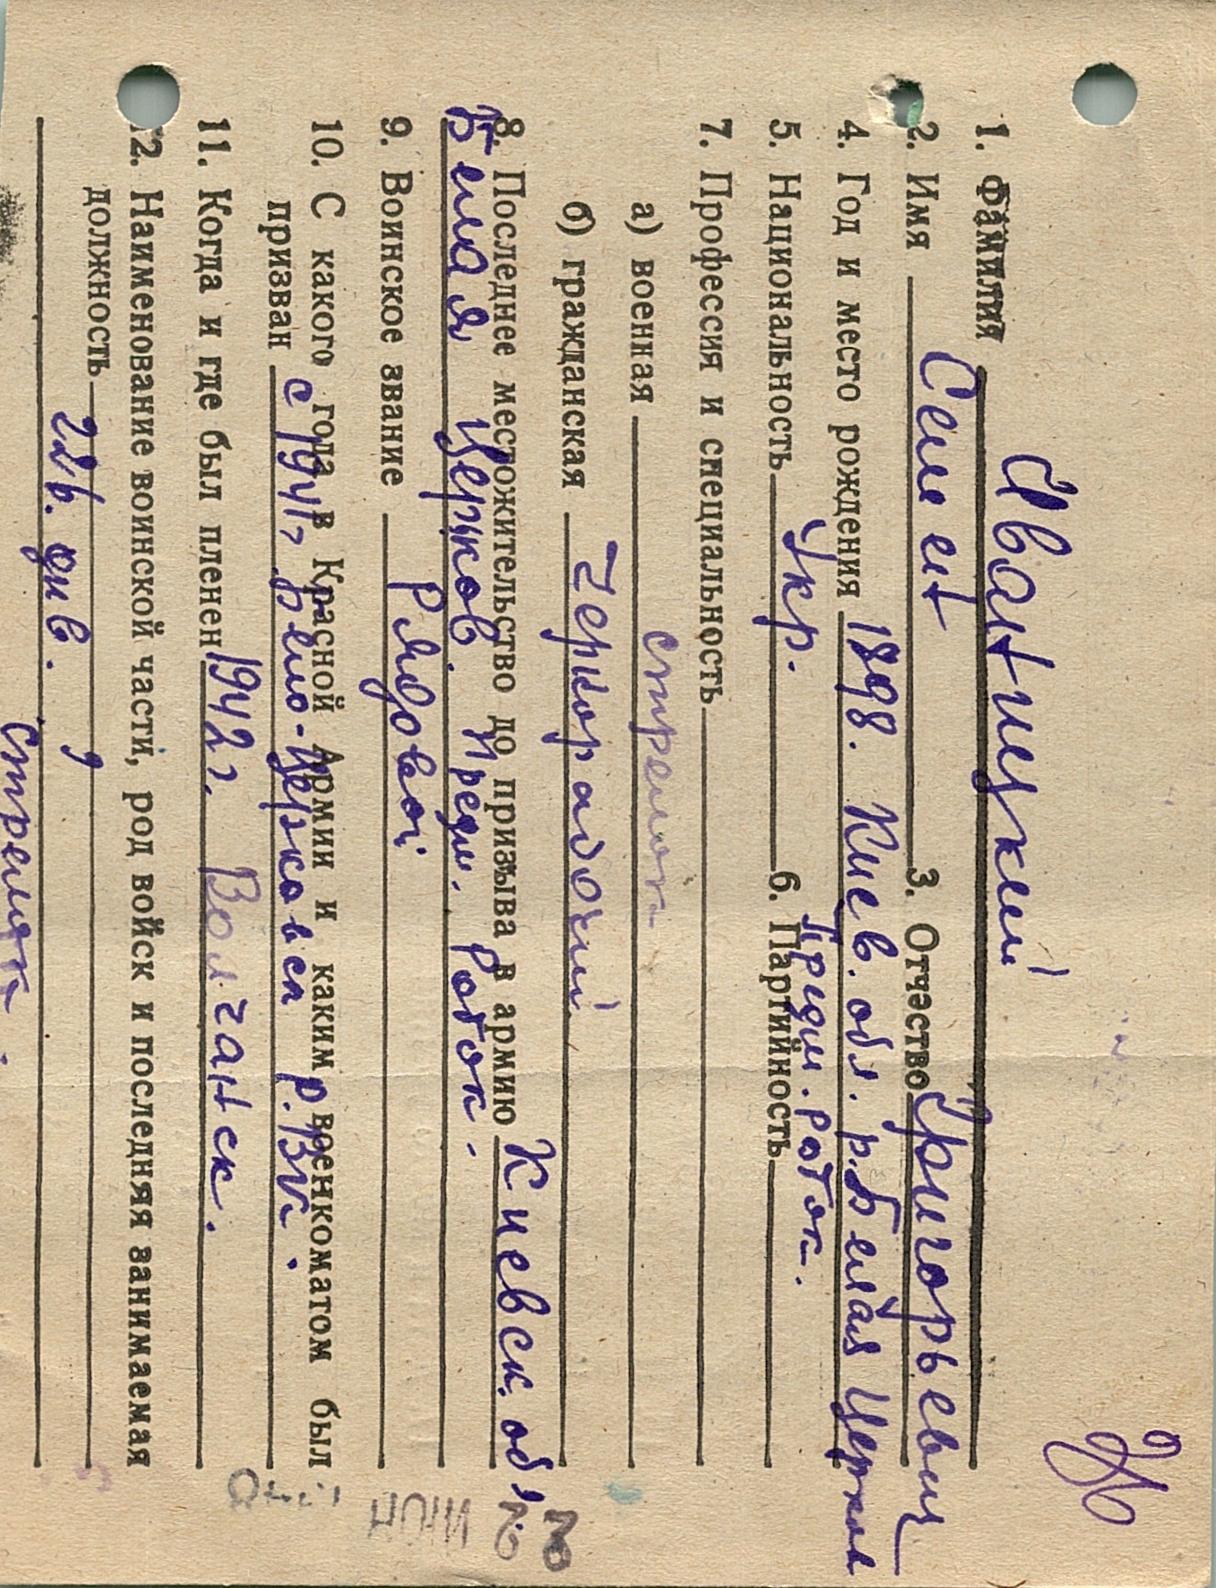 И
1. Фамилия Иваницкий
2. Имя Семен 3. Отчество Григорьевич
4. Год и место рождения 1898. Киев. обл. р. Белая Церков
Предм. роток.
5. Национальность Укр. 6. Партийность
7. Профессия и специальность
а) военная стрелок
б) гражданская Чернорабочий
8. Последнее местожительство до призыва в армию Киевск. об,
Белая Церков. Предм. Роток.
9. Воинское звание Рядовой
10. С какого года в Красной Армии и каким военкоматом был
призван с 1941 г. Бело-Церковск р.ВК.
11. Когда и где был пленен 1942 г. Волчанск.
12. Наименование воинской части, род войск и последняя занимаемая
должность
див.,
Стрелок.